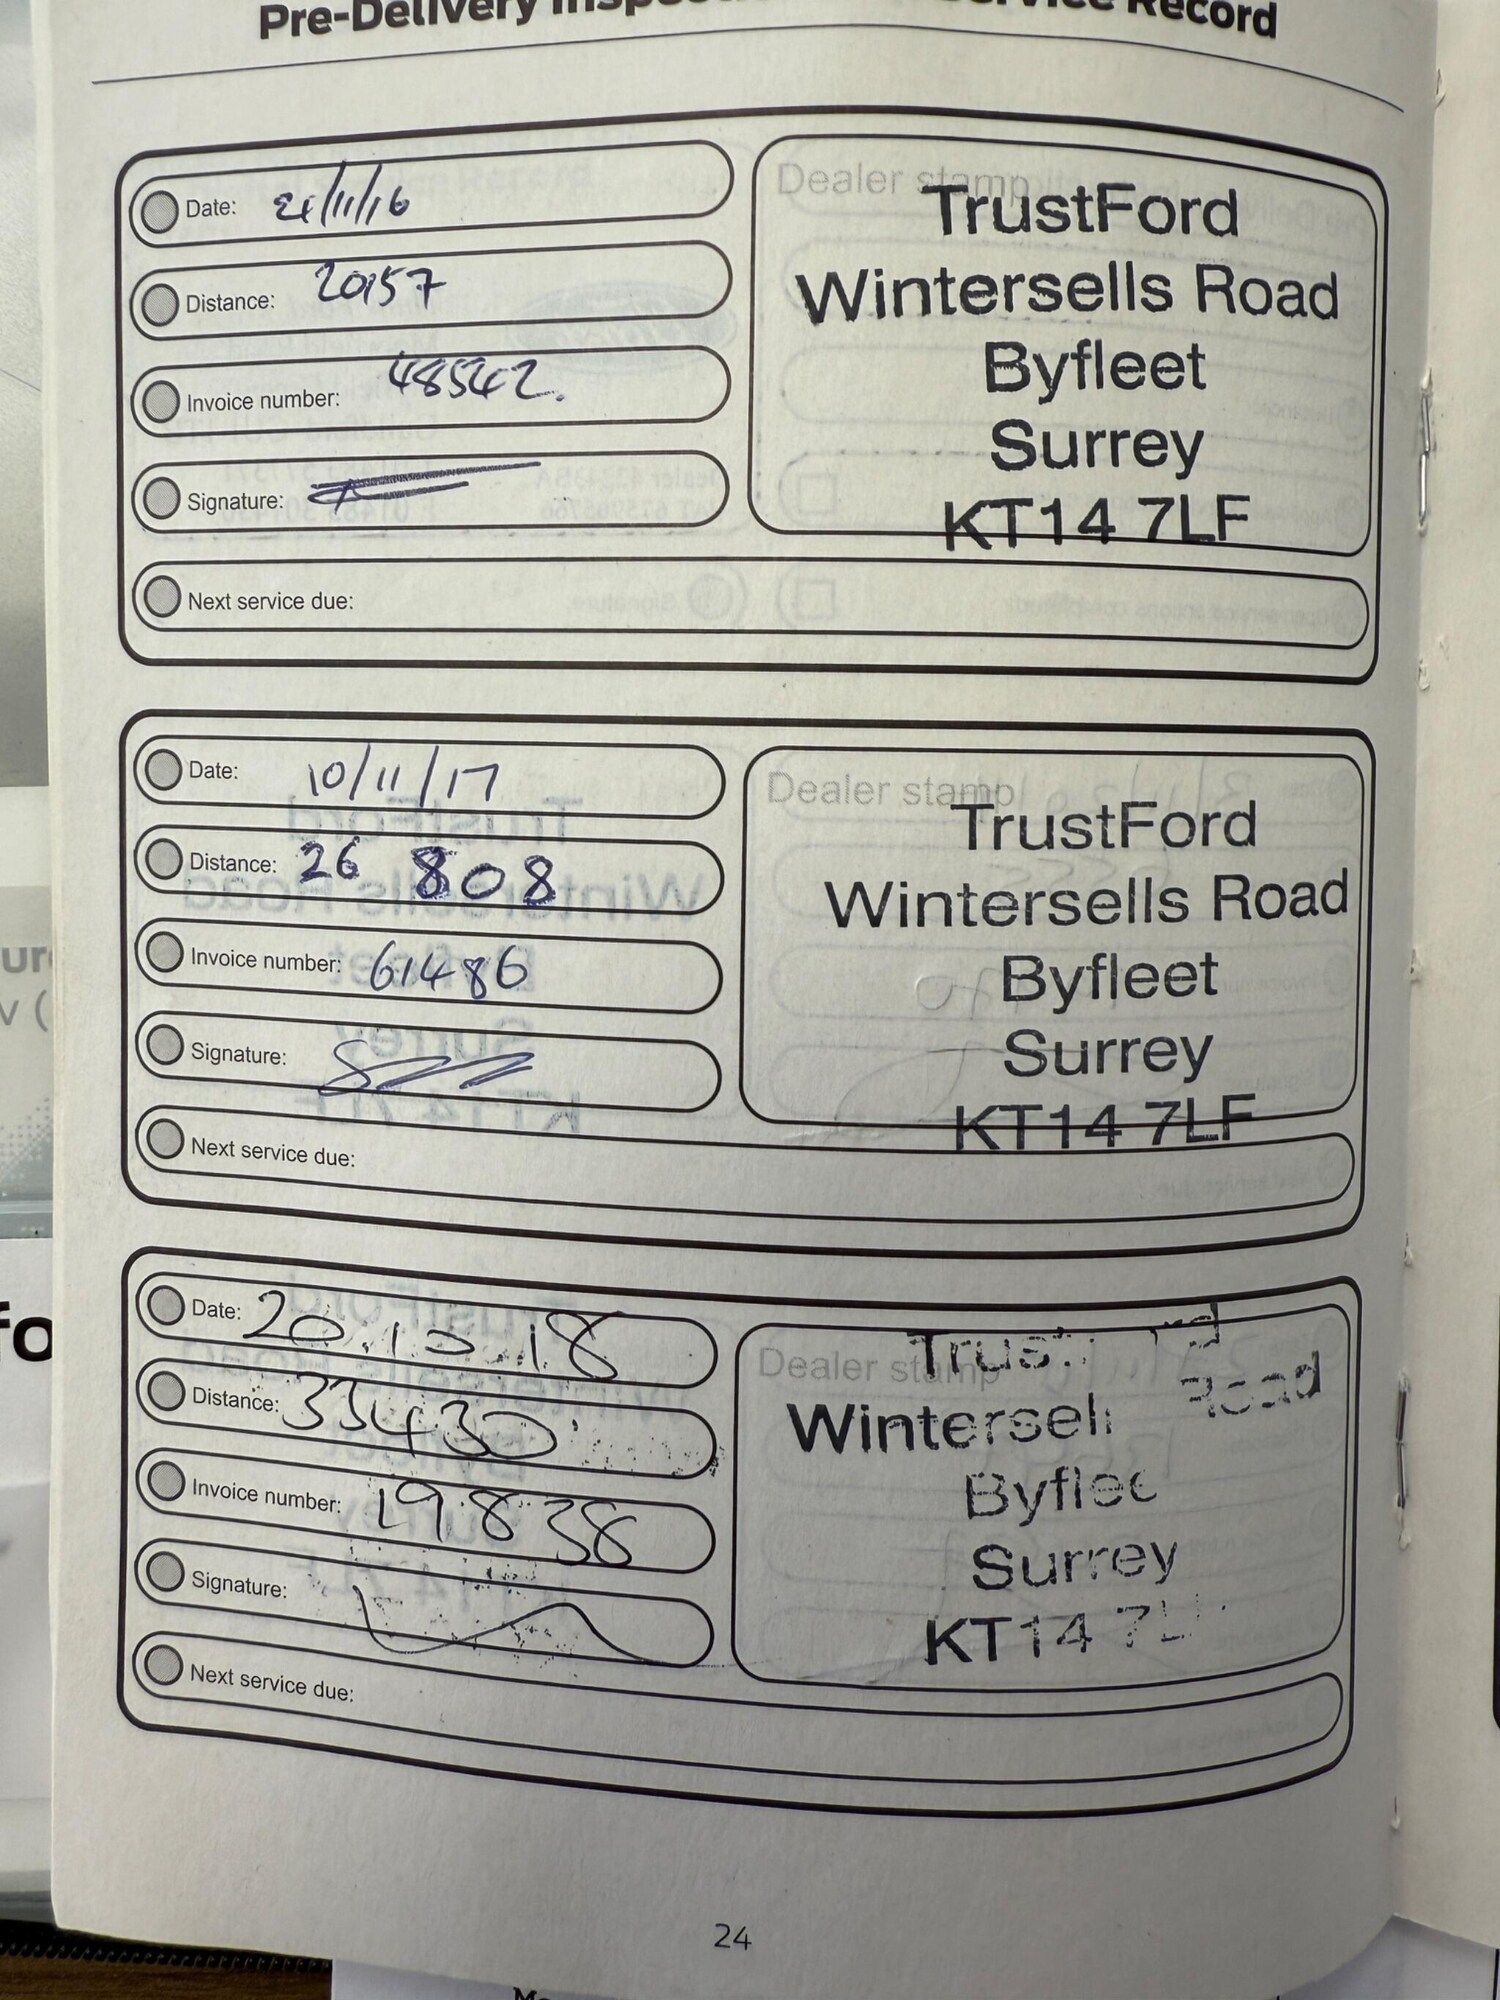 Pre-Delivery Service Record
Date: 21/11/16
Distance: 20157
Invoice number: 48542.
Signature:
Next service due:
Dealer stamp
TrustFord
Wintersells Road
Byfleet
Surrey
KT14 7LF
Date: 10/11/17
Distance: 26 808
Invoice number: 61486
Signature:
Next service due:
Dealer stamp
TrustFord
Wintersells Road
Byfleet
Surrey
KT14 7LF
Date: 20.10.18
Distance: 33430
Invoice number: 19838
Signature:
Next service due:
Dealer stamp
Road
Surrey
KT14
24